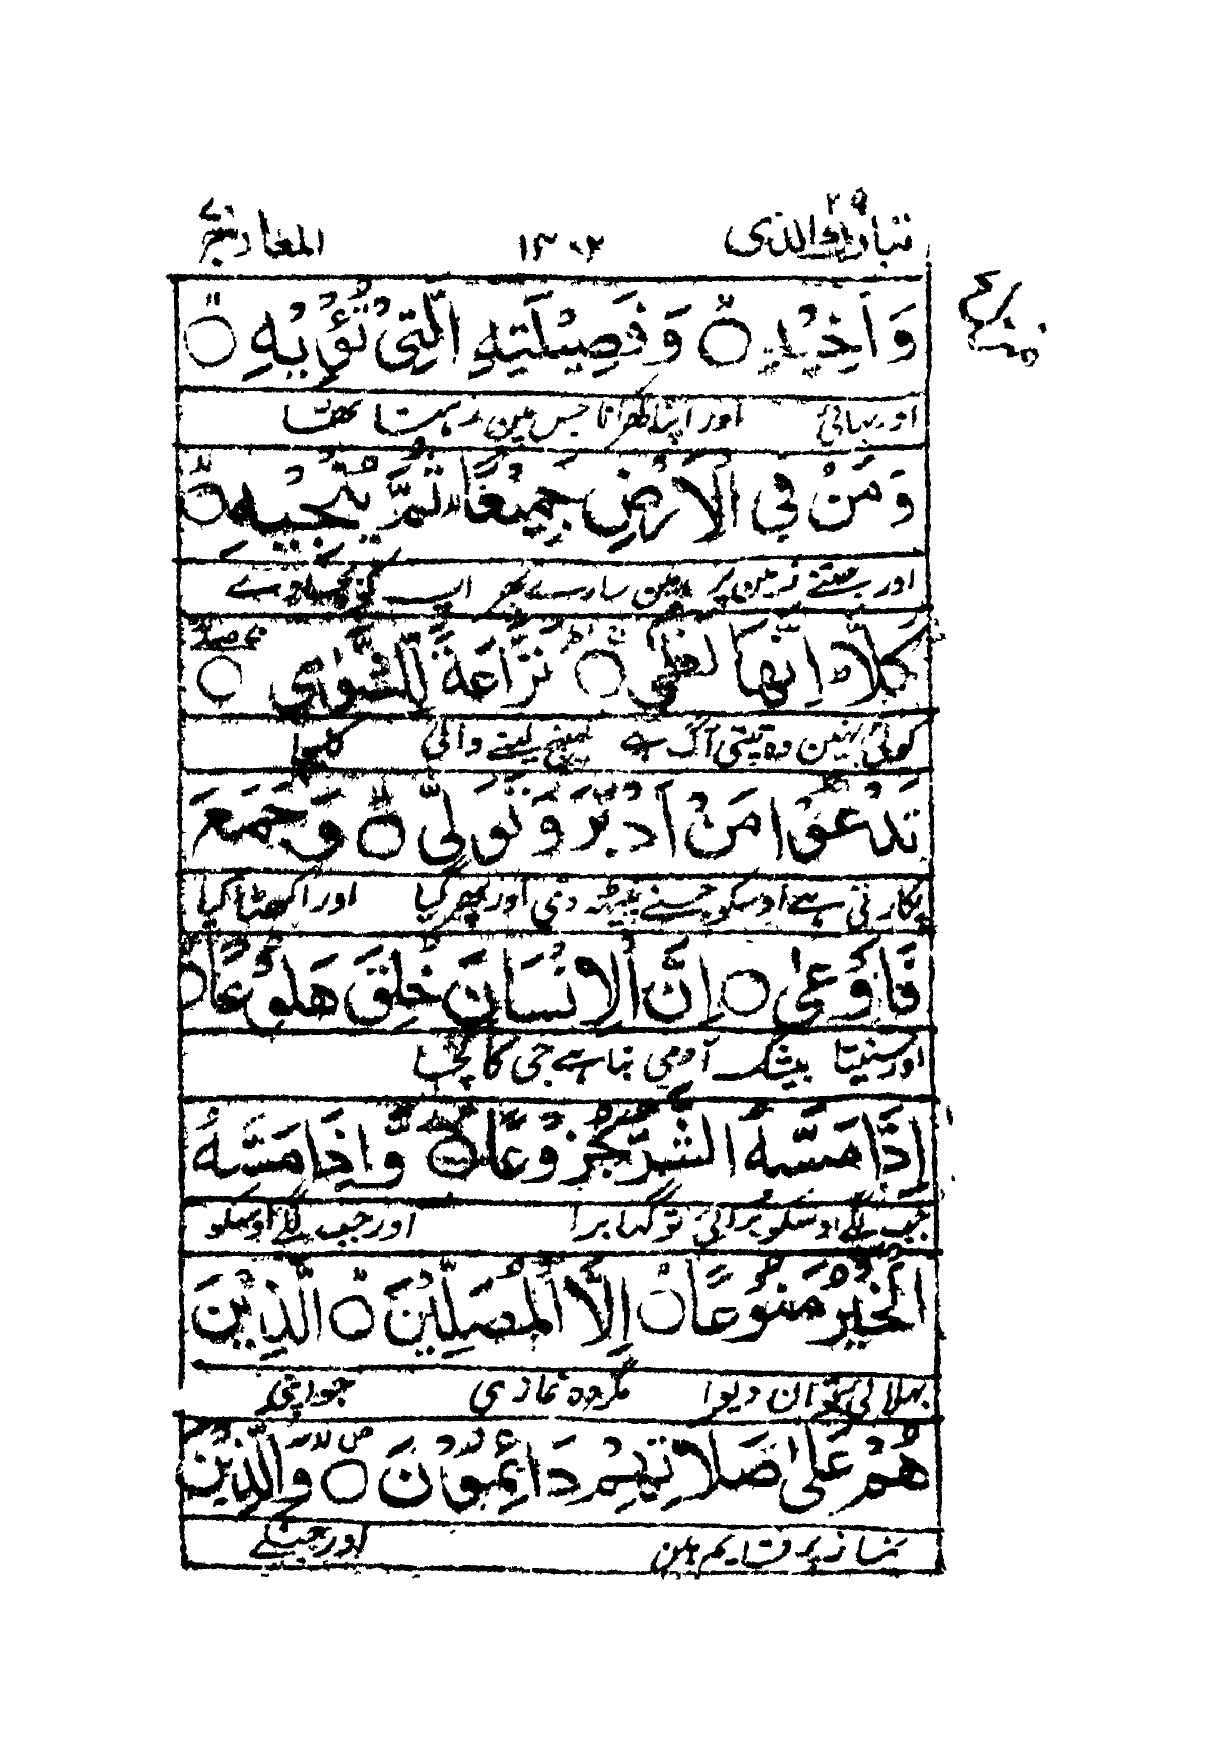 تبارك الذى ٢٩ ١٣٠٢ المعارج ٧٠
وَاَخِيْهِ ۝ وَفَصِيْلَتِهِ الَّتِىْ تُؤْيْهِ ۝
اور بھائی اور اپنا گھرانا جس مین رہتا تھا
وَمَنْ فِى الْاَرْضِ جَمِيْعًا ثُمَّ يُنْجِيْهِ ۝
اور جتنے زمین پر ہین سارے پھر اپ کو بچاوے
كَلَّا ؕ اِنَّهَا لَظٰى ۝ نَزَّاعَةً لِّلشَّوٰى ۝
کوئی نہین وہ تپتی آگ ہے کھینچ لینے والی کلیجا
تَدْعُوْا مَنْ اَدْبَرَ وَتَوَلّٰى ۝ وَجَمَعَ
پکارتی ہے اوسکو جسنے پیٹھ دی اور پھر گیا اور اکھٹا کیا
فَاَوْعٰى ۝ اِنَّ الْاِنْسَانَ خُلِقَ هَلُوْعًا ۝
اور سنیتا بیشک آدمی بنا ہے جی کا کچا
اِذَا مَسَّهُ الشَّرُّ جَزُوْعًا ۝ وَّاِذَا مَسَّهُ
جب لگے اوسکو برائی تو گھبرا اور جب لگے اوسکو
الْخَيْرُ مَنُوْعًا ۝ اِلَّا الْمُصَلِّيْنَ ۝ الَّذِيْنَ
بھلائی تو ان دیوا مگر وہ نمازی جو اپنی
هُمْ عَلٰى صَلَاتِهِمْ دَائِمُوْنَ ۝ وَالَّذِيْنَ
نماز پر قایم ہین اور جنکے